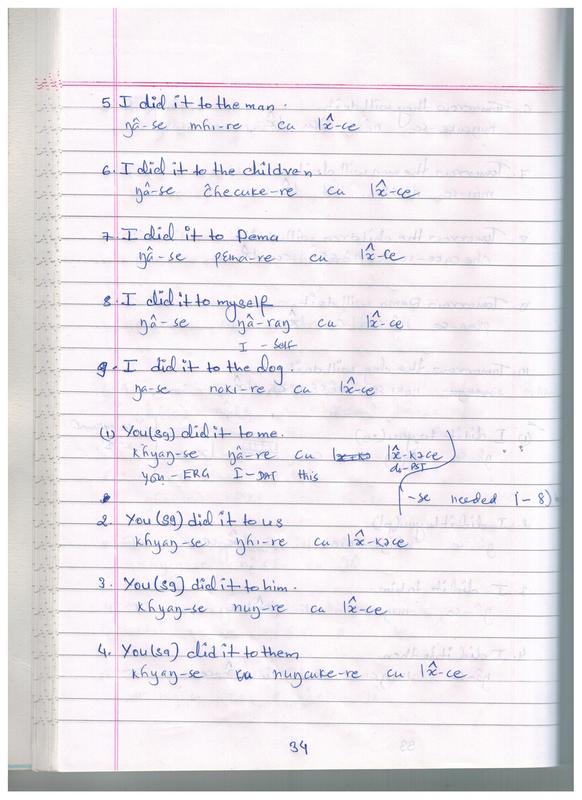 5 I did it to the man.
ŋâ-se mhi-re cu lx̂-ce
6. I did it to the children
ŋâ-se ĉhecuke-re cu lx̂-ce
7. I did it to Pema
ŋâ-se pema-re cu lx̂-ce
8. I did it to myself
ŋâ-se ŋâ-raŋ cu lx̂-ce
I - self
9. I did it to the dog.
ŋa-se noki-re cu lx̂-ce
(1) You(sg) did it to me.
khyaŋ-se ŋâ-re cu lx̂-kəce
you-ERG I-DAT this do-PST
-se needed 1-8)
2. You(sg) did it to us
khyaŋ-se ŋhi-re cu lx̂-kəce
3. You(sg) did it to him.
khyaŋ-se huŋ-re cu lx̂-ce
4. You(sg) did it to them
khyaŋ-se huŋcuke-re cu lx̂-ce
34